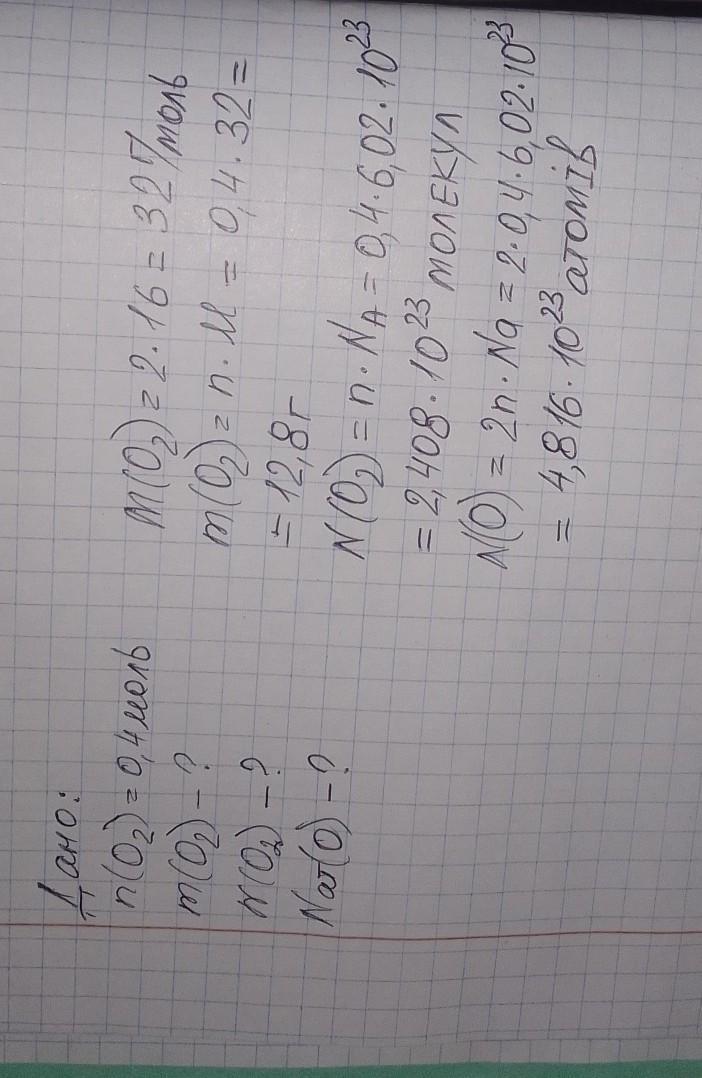 Дано:
n(O₂) = 0,4 моль
m(O₂) – ?
N(O₂) – ?
Nат(O) – ?
M(O₂) = 2·16 = 32 г/моль
m(O₂) = n·M = 0,4·32 =
= 12,8 г
N(O₂) = n·NA = 0,4·6,02·10²³
= 2,408·10²³ молекул
N(O) = 2n·Na = 2·0,4·6,02·10²³
= 4,816·10²³ атомів